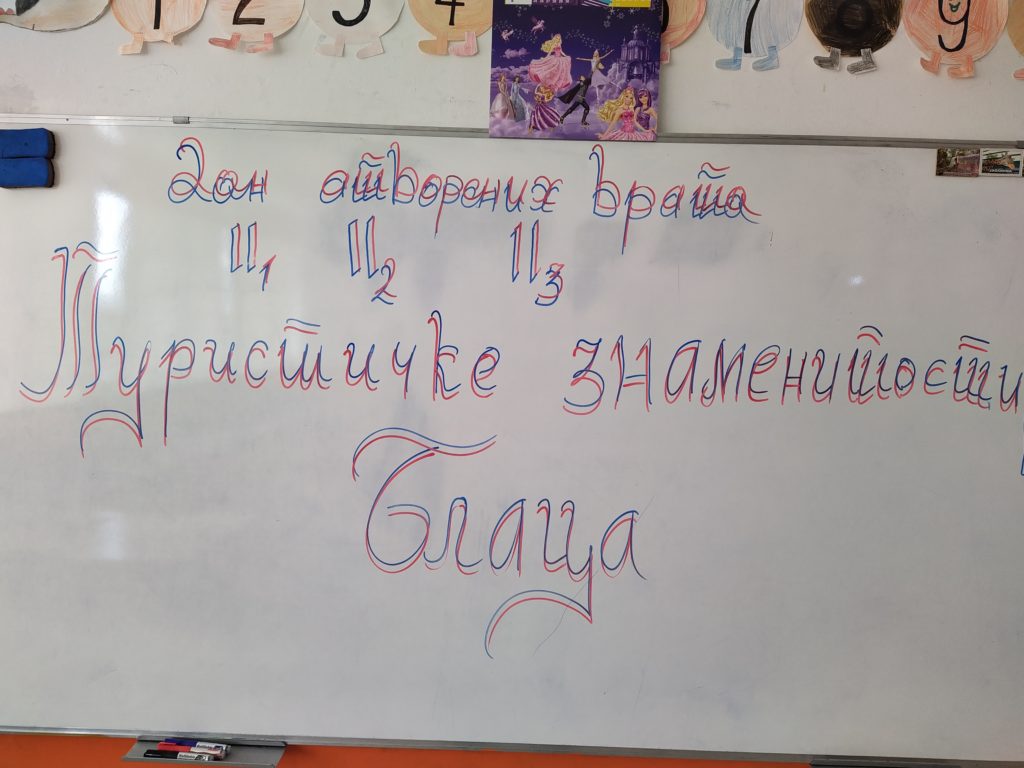 1 2 3 4 7 9
Дан отворених врата
II1 II2 II3
Туристичке знаменитости
Блаца